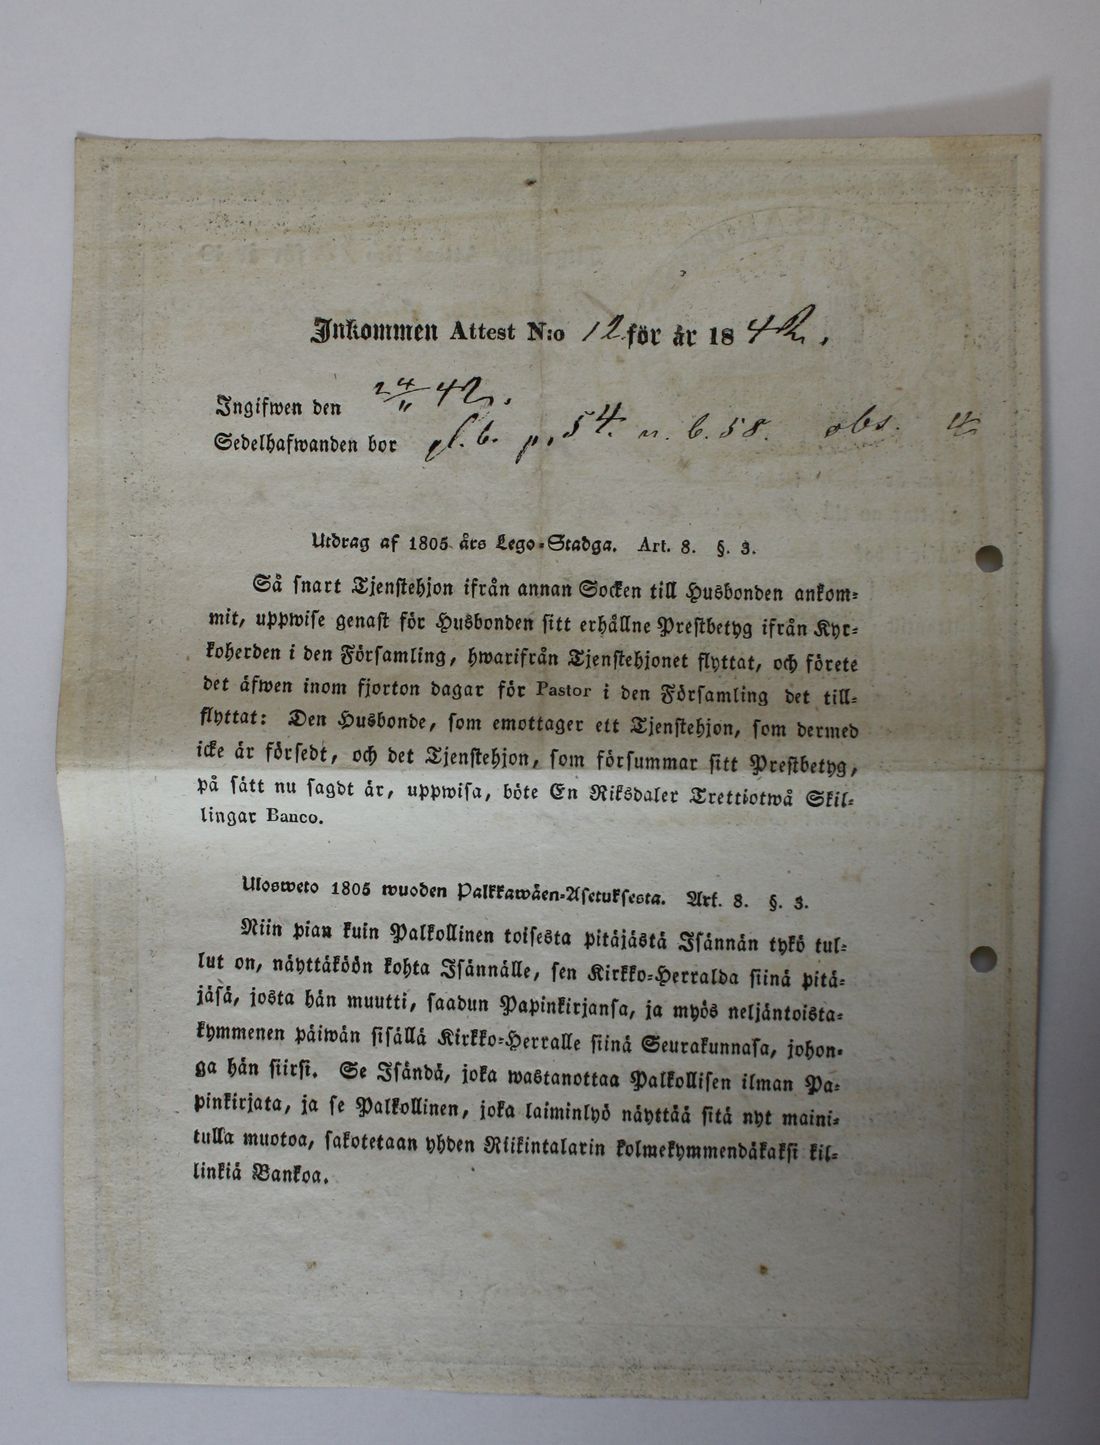 Inkommen Attest N:o 12 för år 1842.
Ingifwen den 24/11 42.
Sedelhafwanden bor gl. b. p. 54. n. b. 58. obs.
Utdrag af 1805 års Lego-Stadga. Art. 8. §. 3.
Så snart Tjenstehjon ifrån annan Socken till Husbonden ankom-
mit, uppwise genast för Husbonden sitt erhållne Prestbetyg ifrån Kyr-
koherden i den Församling, hwarifrån Tjenstehjonet flyttat, och förete
det äfwen inom fjorton dagar för Pastor i den Församling det till-
flyttat: Den Husbonde, som emottager ett Tjenstehjon, som dermed
icke är försedt, och det Tjenstehjon, som försummar sitt Prestbetyg,
på sätt nu sagdt är, uppwisa, böte En Riksdaler Trettiotwå Skil-
lingar Banco.
Ulosweto 1805 wuoden Palkkawäen-Asetuksesta. Art. 8. §. 3.
Niin pian kuin Palkollinen toisesta pitäjästä Isännän tykö tul-
lut on, näyttäköön kohta Isännälle, sen Kirkko-Herralda siinä pitä-
jäsä, josta hän muutti, saadun Papinkirjansa, ja myös neljäntoista-
kymmenen päiwän sisällä Kirkko-Herralle siinä Seurakunnasa, johon-
ga hän siirsi. Se Isändä, joka wastanottaa Palkollisen ilman Pa-
pinkirjata, ja se Palkollinen, joka laiminlyö näyttää sitä nyt maini-
tulla muotoa, sakotetaan yhden Riikintalarin kolmekymmendäkaksi kil-
linkiä Bankoa.